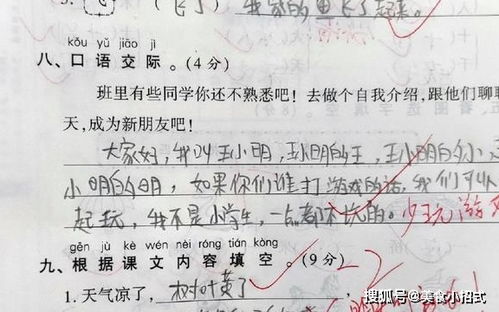 (飞了) 我家的 飞了起来。
kǒu yǔ jiāo jì
八、口语交际。(4分)
班里有些同学你还不熟悉吧！去做个自我介绍，跟他们聊聊
天，成为新朋友吧！
大家好，我叫王小明，王小明的王，王小明的小，王
小明的明，如果你们谁打游戏的话，我们可以
起玩，我不是小学生，一点都不坑的。少玩游戏
gēn jù kè wén nèi róng tián kòng
九、根据课文内容填空。(9分) -2
1.天气凉了，树叶黄了，
搜狐号@美食小招式